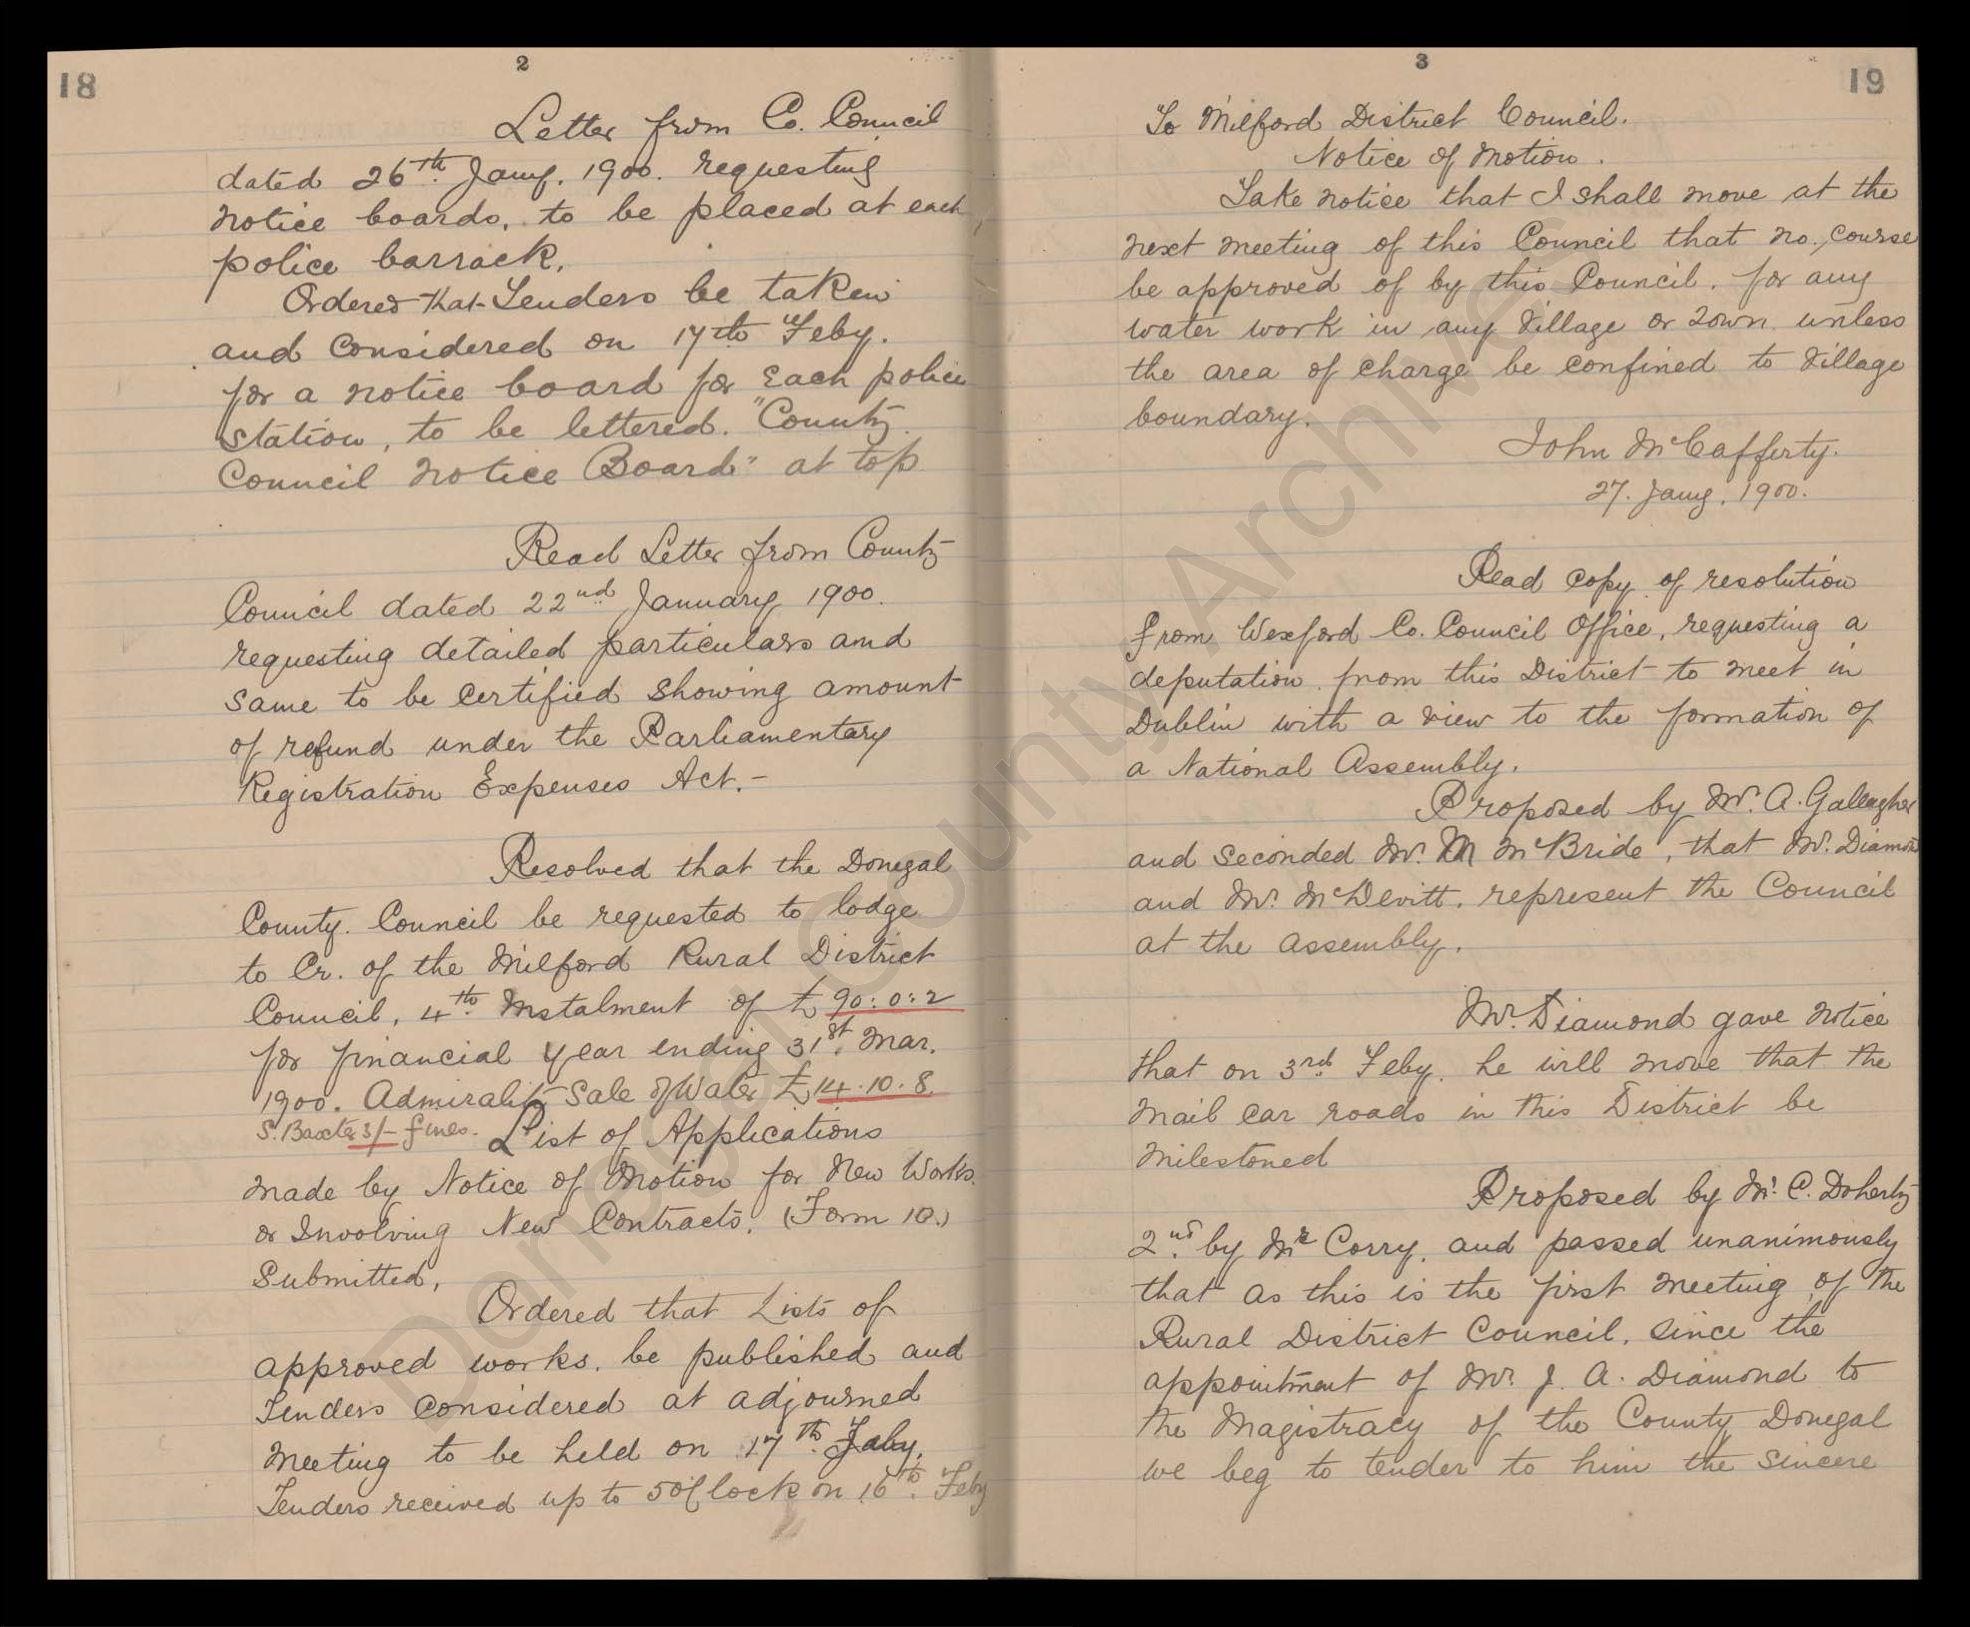 18
2
Letter from Co. Council
dated 26th Jany. 1900. requesting
notice boards, to be placed at each
police barrack.
Ordered that Tenders be taken
and considered on 17th Feby.
for a notice board for Each police
station, to be lettered. "County
Council Notice Board" at top
Read Letter from County
Council dated 22nd January 1900.
requesting detailed particulars and
same to be certified showing amount
of refund under the Parliamentary
Registration Expenses Act.-
Resolved that the Donegal
County. Council be requested to lodge
to Cr. of the Milford Rural District
Council, 4th Instalment of £90:0:2
for financial year ending 31st Mar.
1900. Admiralty Sale of Water £14.10.8
S. Baxter 3/- fines. List of Applications
made by Notice of Motion for New Works
or Involving New Contracts. (Form 10.)
Submitted,
Ordered that Lists of
approved works, be published and
Tenders considered at adjourned
meeting to be held on 17th Feby.
Tenders received up to 5 O'Clock on 16th Feby
3
19
To Milford District Council.
Notice of Motion.
Take notice that I shall move at the
next meeting of this Council that no, course
be approved of by this Council, for any
water work in any Village or Town unless
the area of charge be confined to Village
boundary.
John McCafferty.
27. Jany. 1900.
Read copy of resolution
from Wexford Co. Council Office, requesting a
deputation from this District to meet in
Dublin with a view to the formation of
a National Assembly.
Proposed by Mr. A. Gallagher
and seconded Mr. M McBride, that Mr. Diamond
and Mr. McDevitt, represent the Council
at the assembly.
Mr. Diamond gave notice
that on 3rd Feby. he will move that the
mail car roads in this District be
milestoned
Proposed by Mr. C. Doherty
2nd by Mr Corry, and passed unanimously
that as this is the first meeting of the
Rural District Council, since the
appointment of Mr. J. A. Diamond to
the Magistracy of the County Donegal
we beg to tender to him the sincere
Donegal County Archives